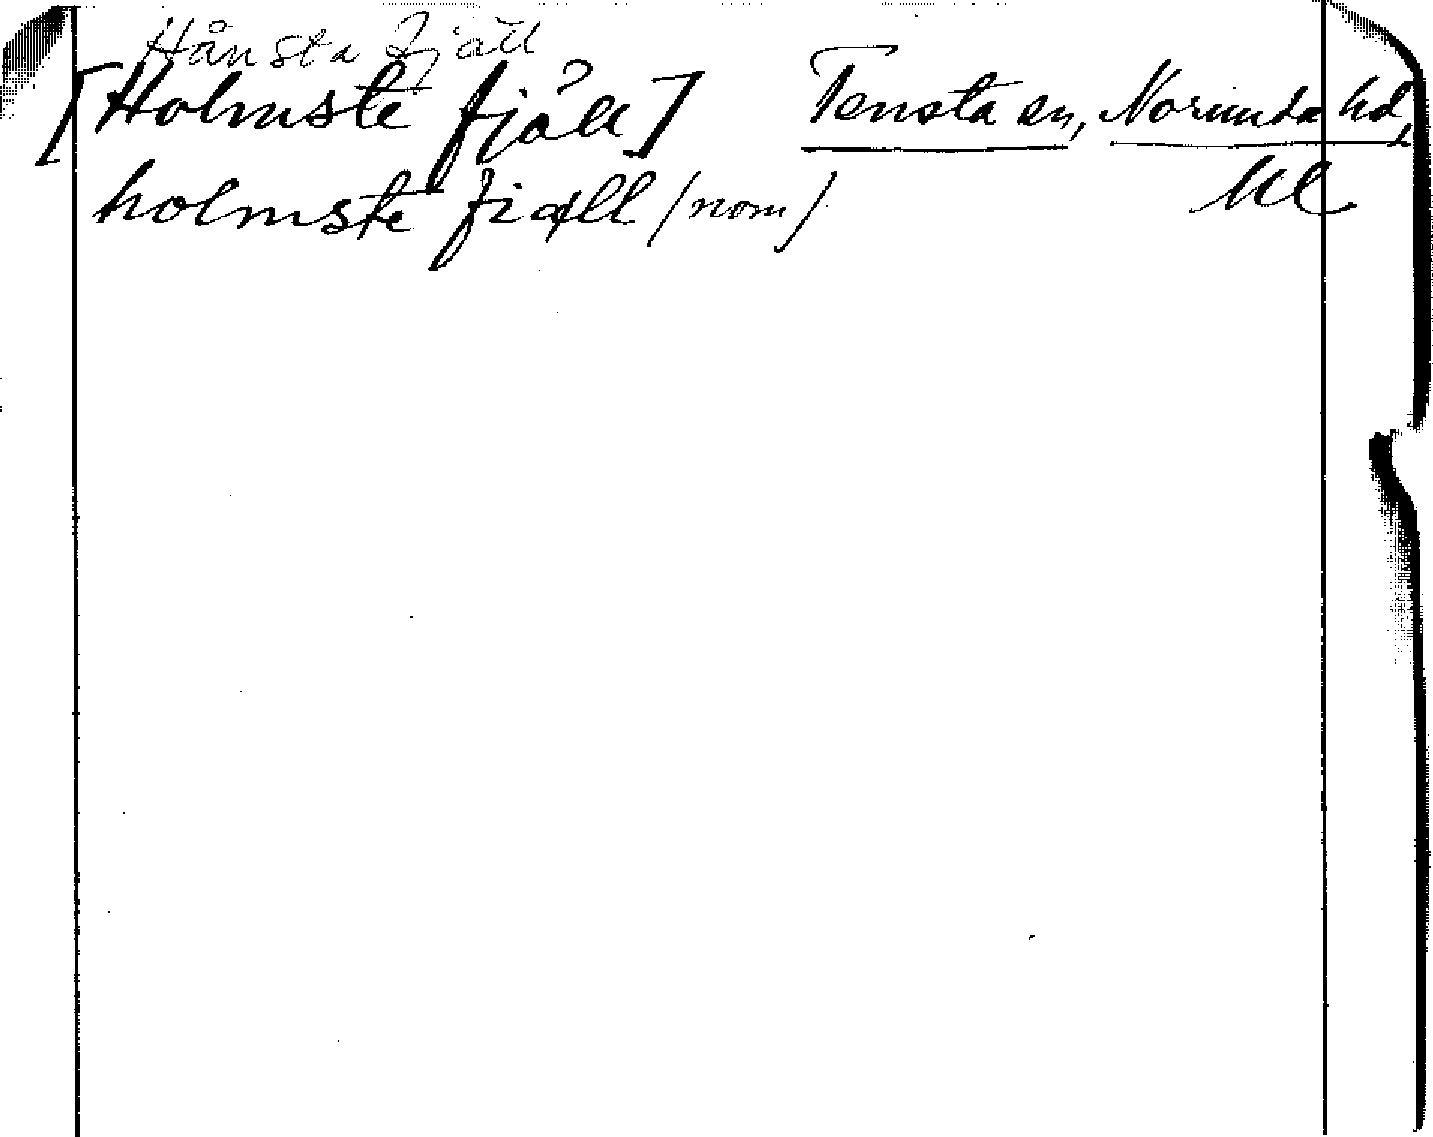 Hånsta Fjäll
[Holmste fjäll] Tensta sn, Norunda hd,
holmste fiæll (nom) Ul